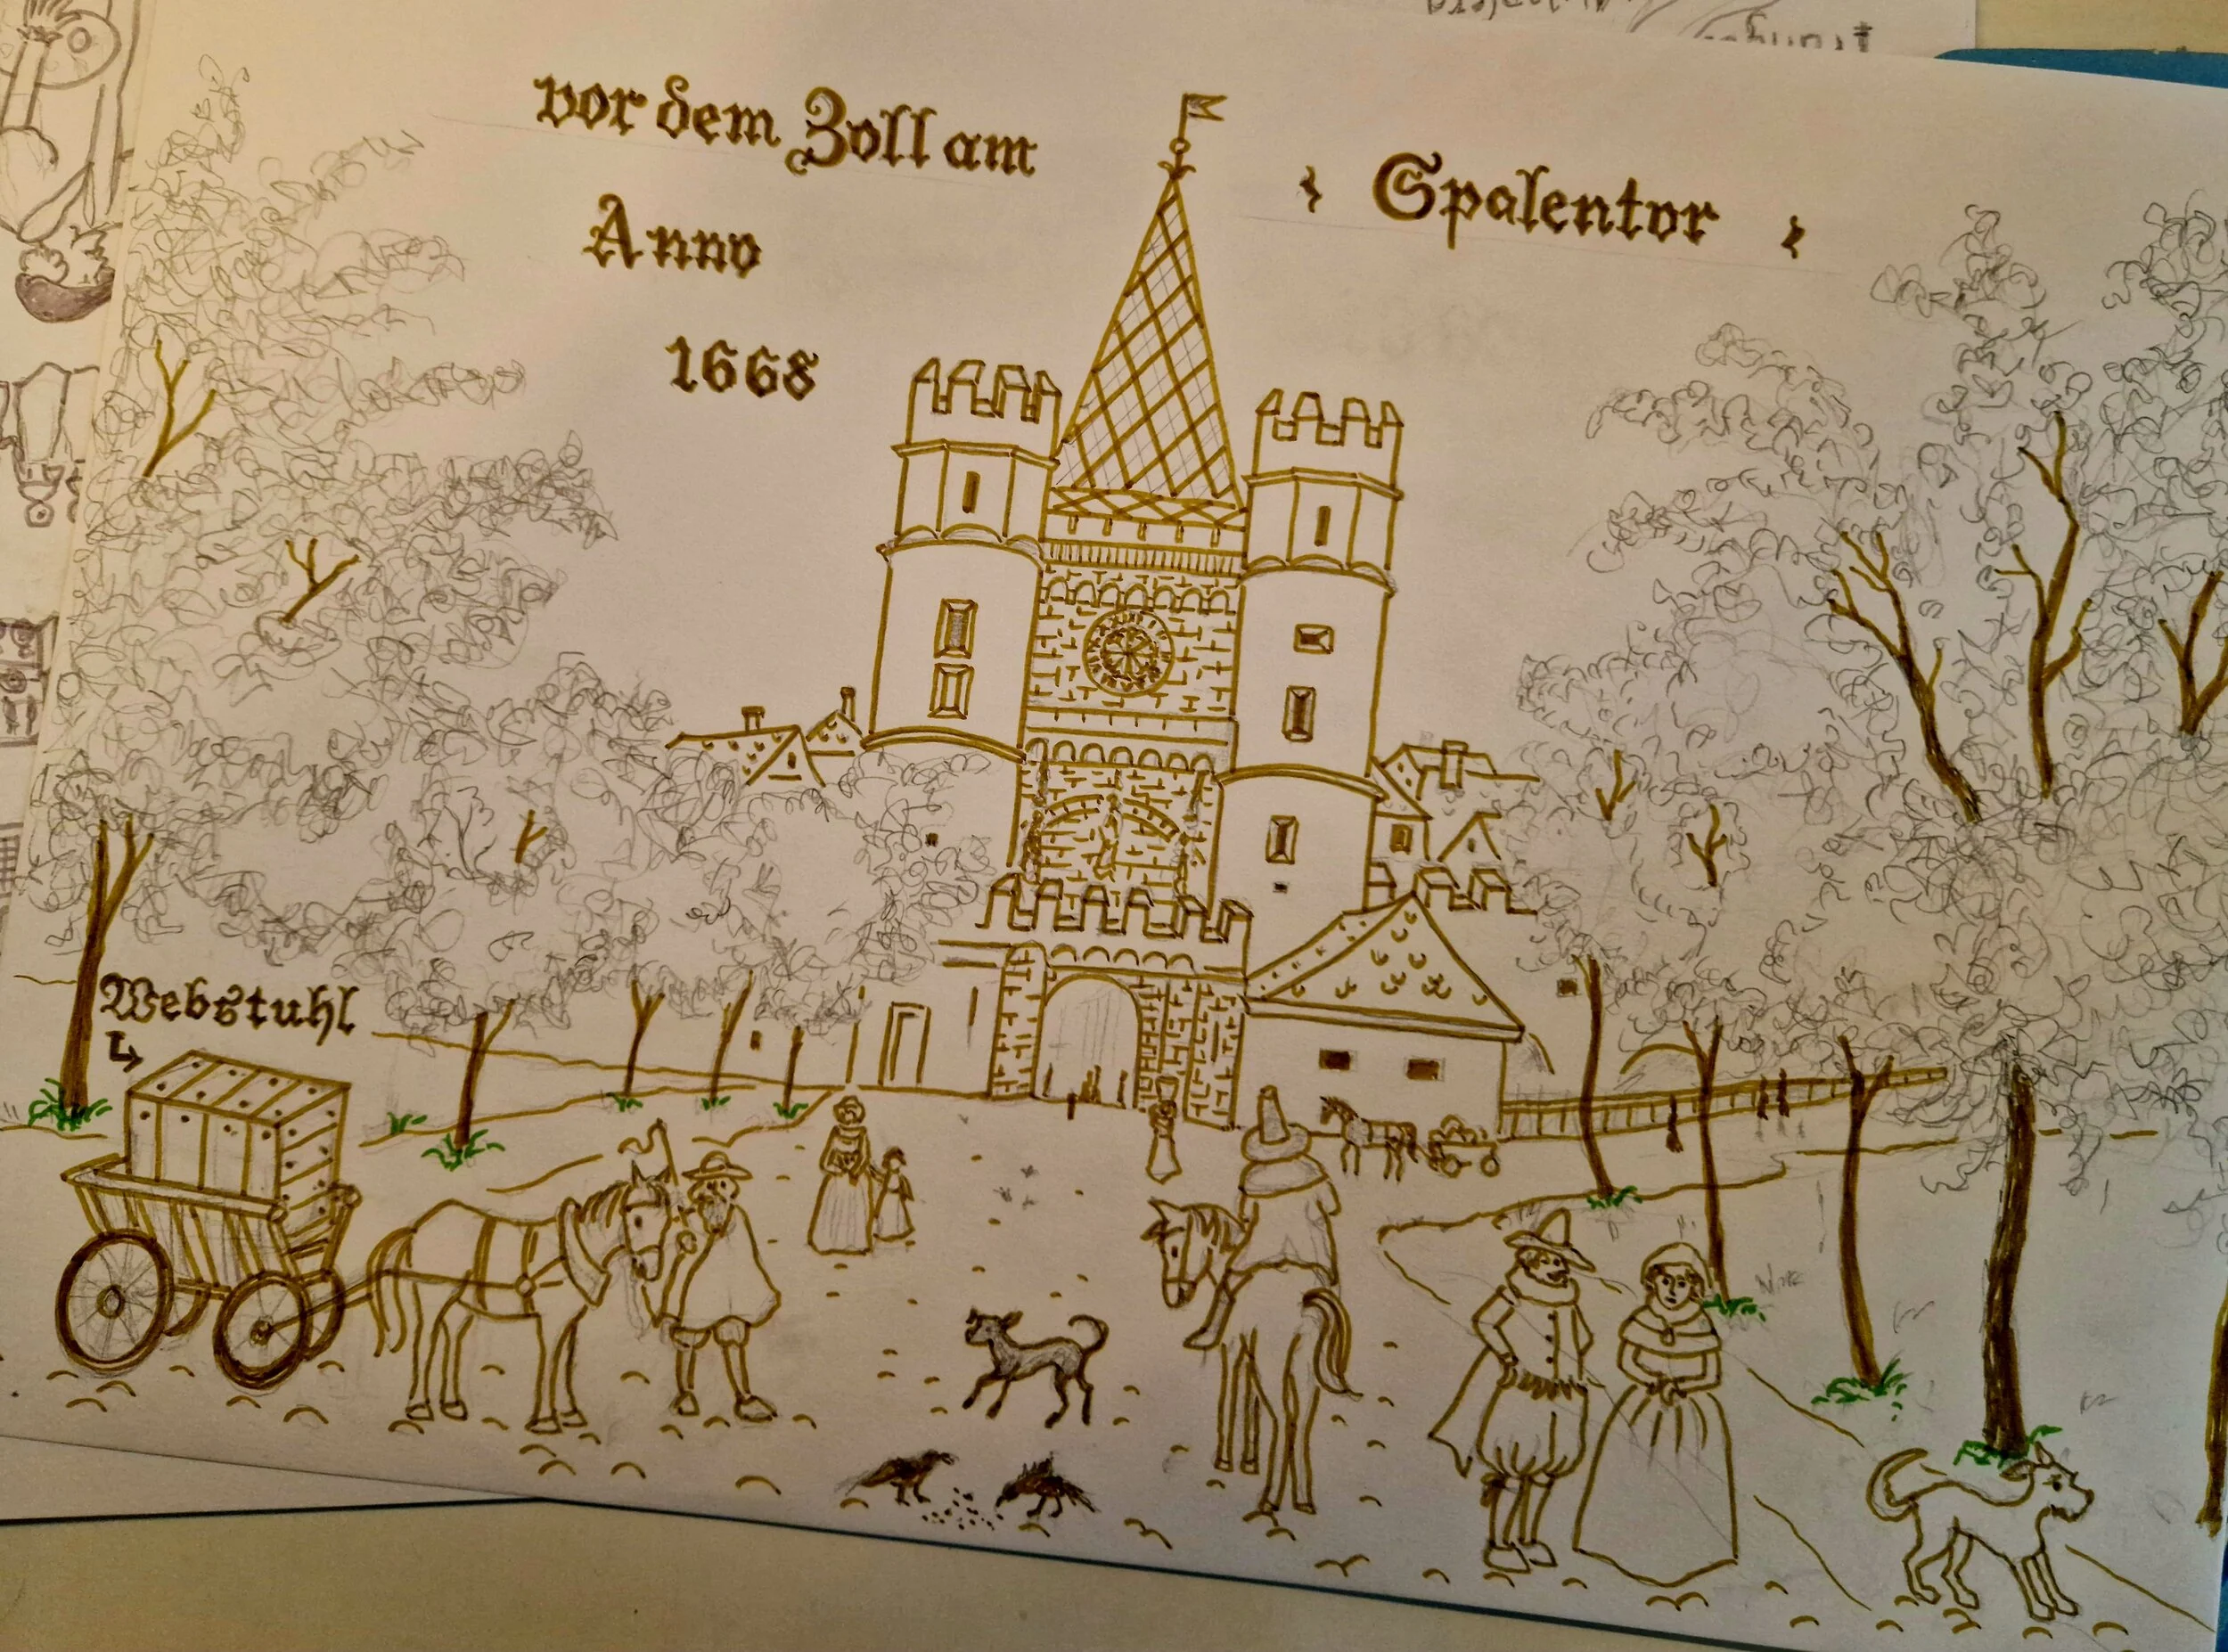 vor dem Zoll am
Anno
1668
Spalentor
Webstuhl